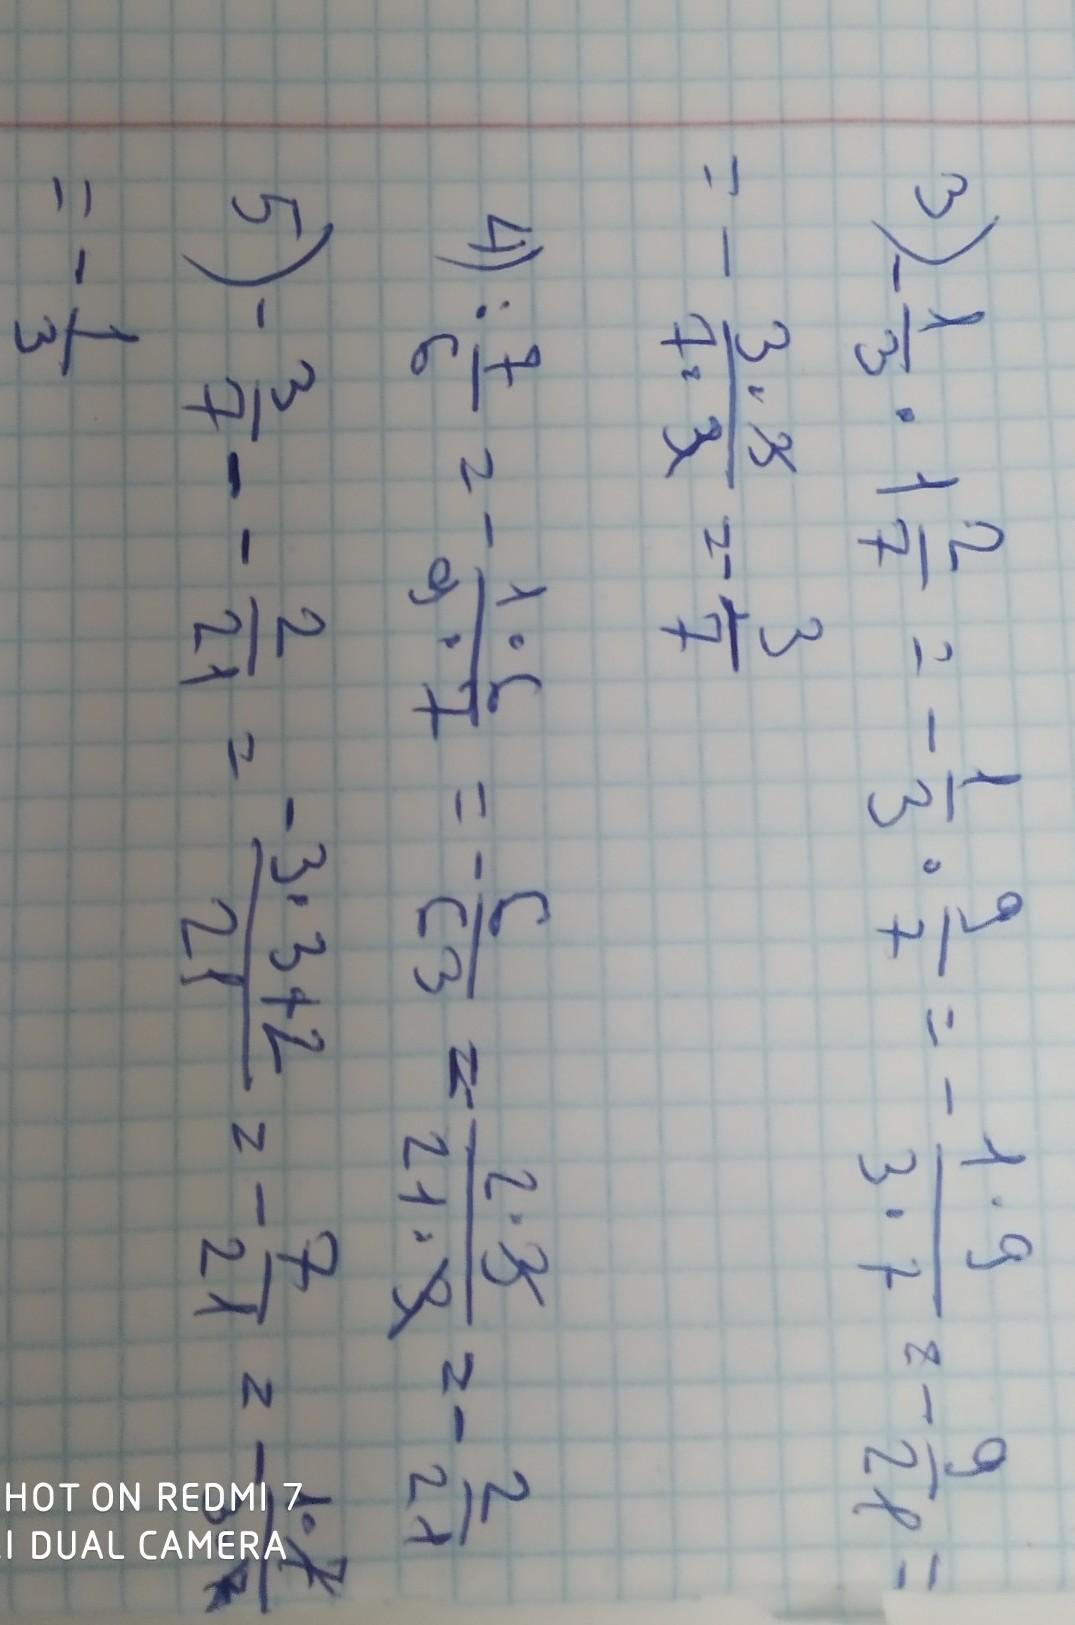 3) - 1/3 · 1 2/7 = - 1/3 · 9/7 = - 1·9/3·7 = - 9/21 =
= - 3·3/7·3 = - 3/7
4) : 7/6 = - 1·6/9·7 = - 6/63 = - 2·3/21·3 = - 2/21
5) - 3/7 - - 2/21 = - 3·3+2/21 = - 7/21 = - 1·7/3·7
= - 1/3
SHOT ON REDMI 7
AI DUAL CAMERA